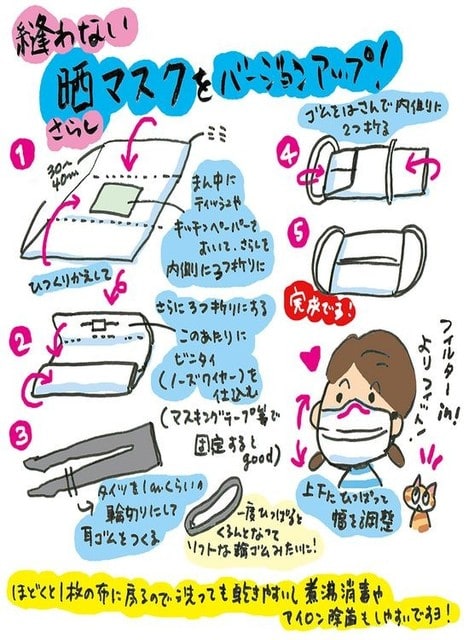 縫わない
晒マスクをバージョンアップ!
さらし
1
30〜
40cm
まん中に
ティッシュや
キッチンペーパーを
おいて、さらしを
内側に3つ折りに
ひっくりかえして
2
さらに3つ折りにする
このあたりに
ビニタイ
(ノーズワイヤー)を
仕込む
(マスキングテープ等で
固定すると
good)
3
タイツを1cmくらいの
輪切りにして
耳ゴムをつくる
一度ひっぱると
くるんとなって
ソフトな輪ゴムみたいに!
4
ゴムをはさんで内側に
2つ折る
5
完成でる!
フィルターin!
よりフィット!
上下にひっぱって
幅を調整
ほどくと1枚の布に戻るので洗っても乾きやすいし煮沸消毒や
アイロン除菌もしやすいですヨ!